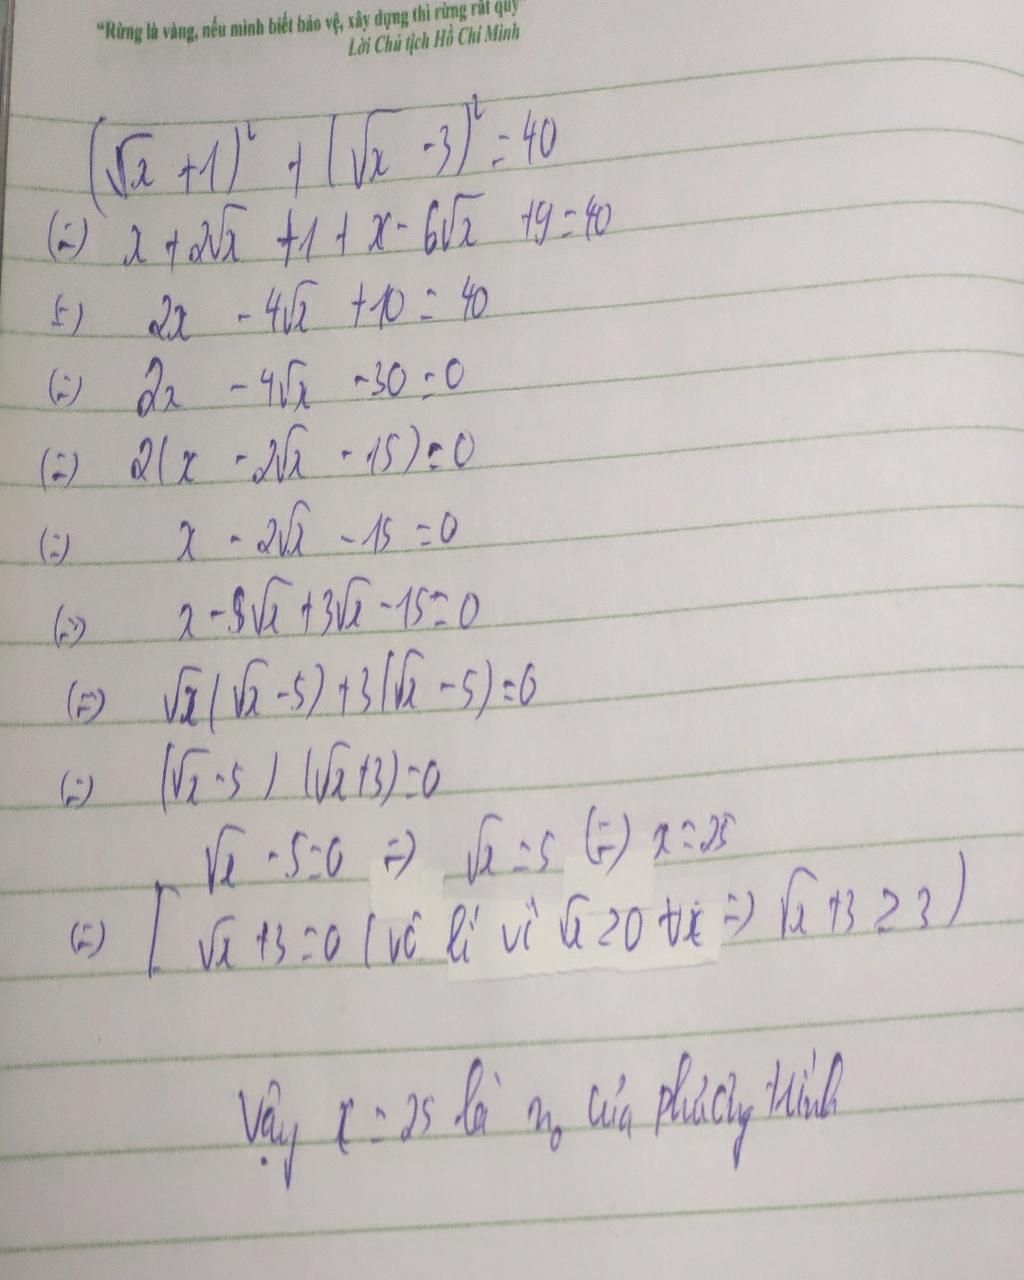 "Rừng là vàng, nếu mình biết bảo vệ, xây dựng thì rừng rất quý"
Lời Chủ tịch Hồ Chí Minh
(√x +1)² + (√x -3)² = 40
(=) x + 2√x +1 + x - 6√x +9 = 40
(=) 2x - 4√x +10 = 40
(=) 2x - 4√x -30 = 0
(=) 2(x - 2√x - 15) = 0
(=) x - 2√x - 15 = 0
(=) x - 5√x + 3√x - 15 = 0
(=) √x(√x - 5) + 3(√x - 5) = 0
(=) (√x - 5) (√x + 3) = 0
√x - 5 = 0 => √x = 5 (=) x = 25
(=) [ √x + 3 = 0 (vô lí vì √x ≥ 0 ∀x => √x + 3 ≥ 3)
Vậy x = 25 là n₀ của phương trình